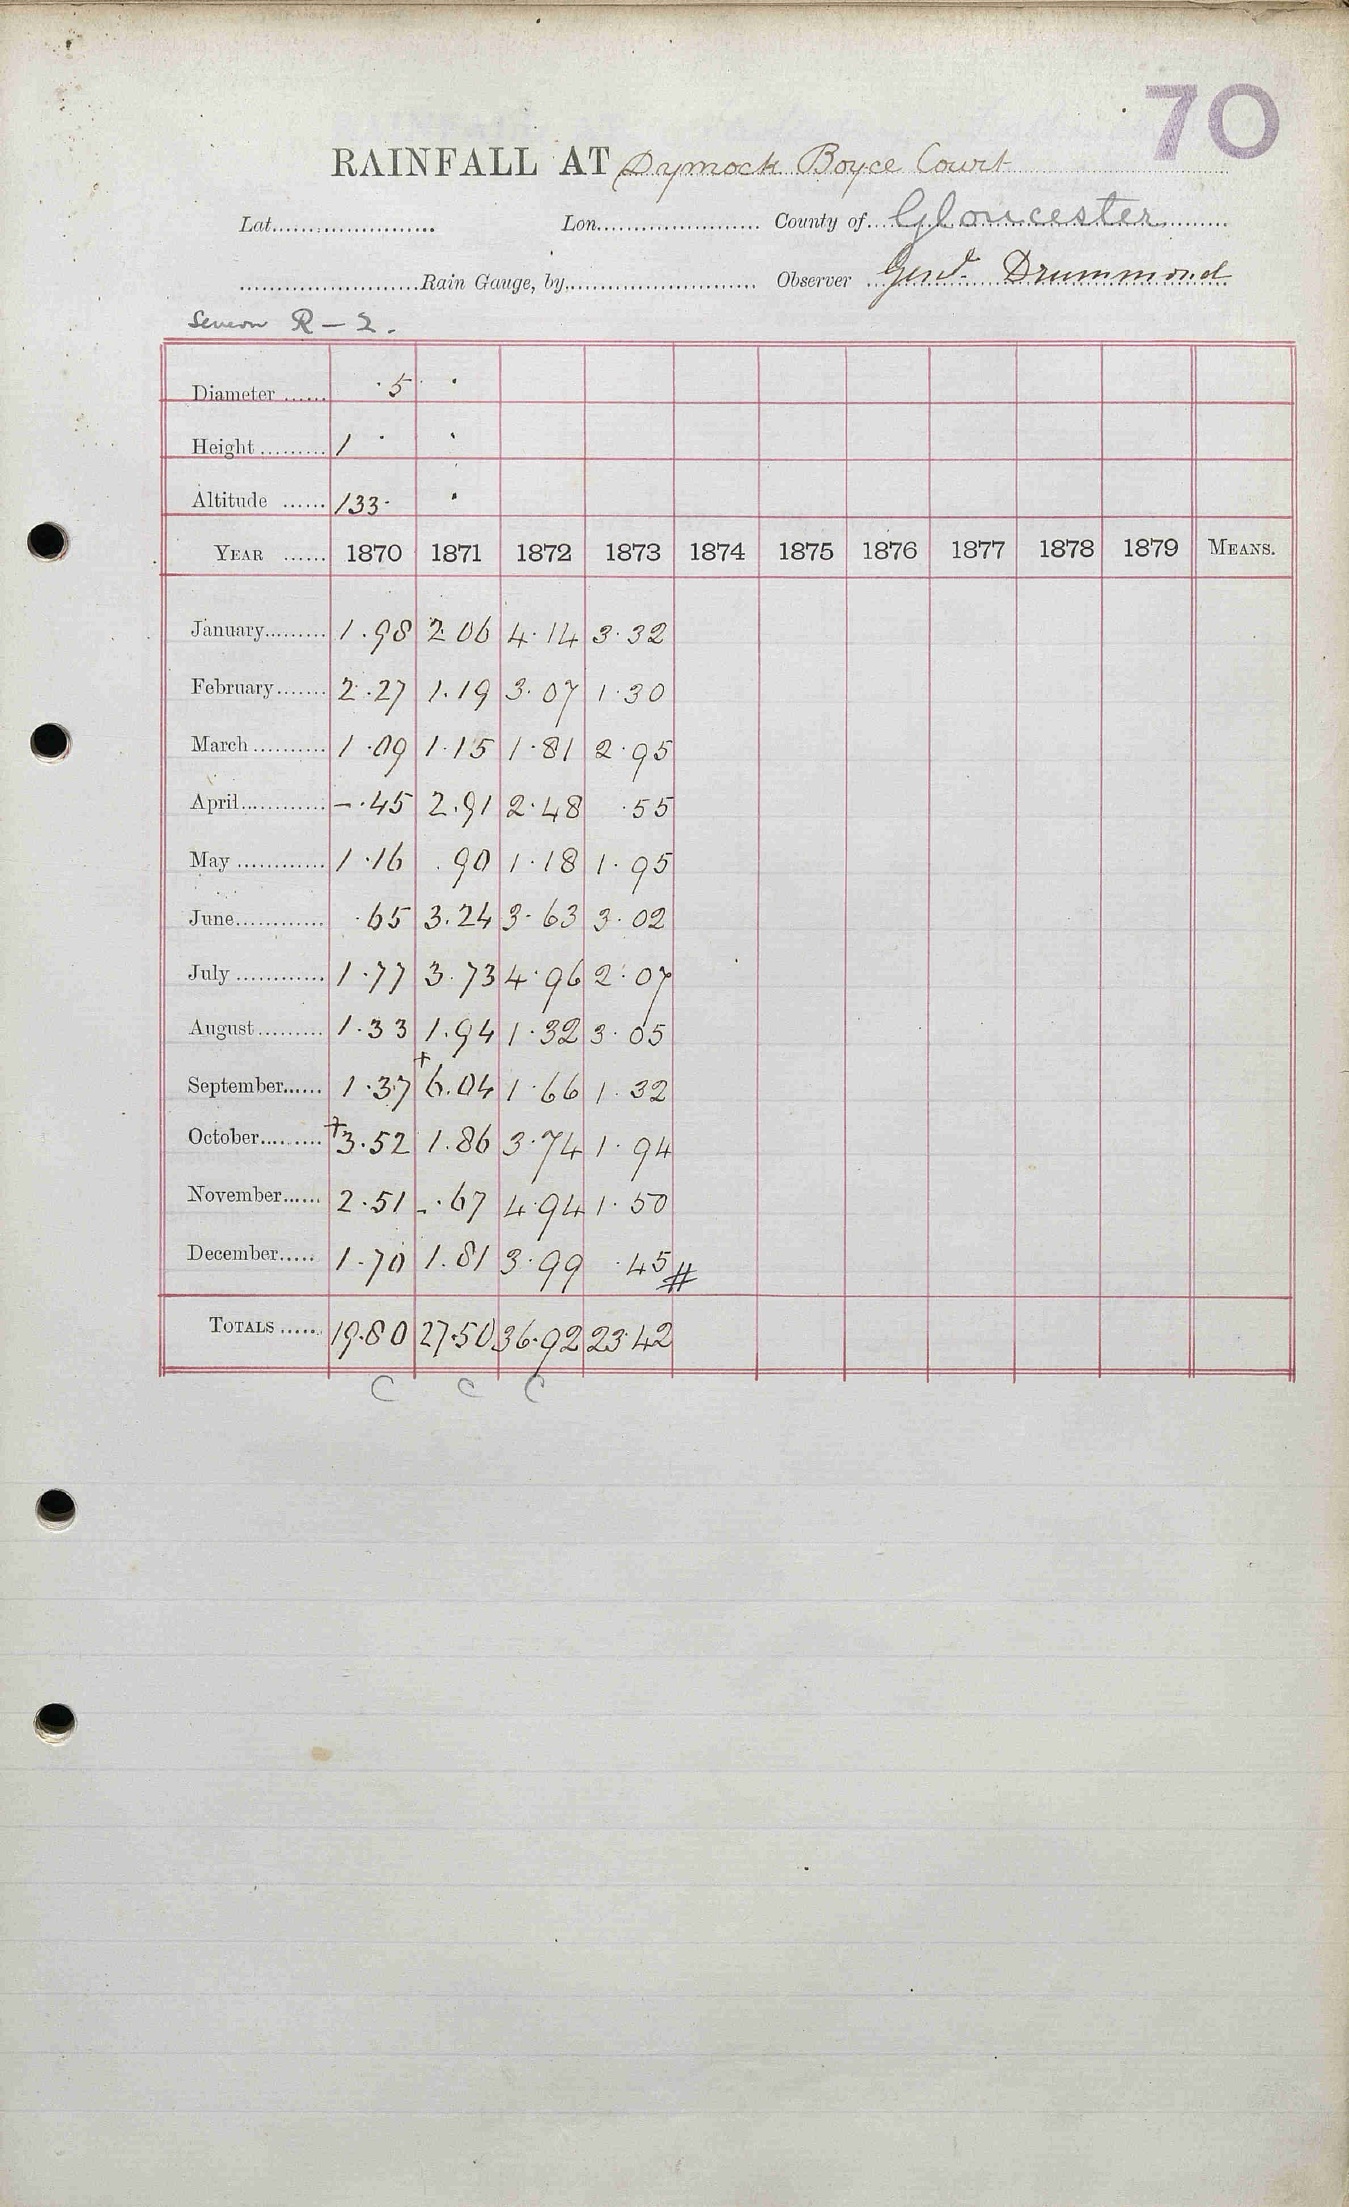 70
RAINFALL AT Dymock Boyce Court
Lat. Lon. County of Gloucester
Rain Gauge, by Observer Genl. Drummond
Severn R - 2.
Diameter 5 ·
Height 1 · ·
Altitude 133· ·
YEAR 1870 1871 1872 1873 1874 1875 1876 1877 1878 1879 MEANS.
January 1.98 2.06 4.14 3.32
February 2.27 1.19 3.07 1.30
March 1.09 1.15 1.81 2.95
April -.45 2.91 2.48 .55
May 1.16 .90 1.18 1.95
June .65 3.24 3.63 3.02
July 1.77 3.73 4.96 2.07
August 1.33 1.94 1.32 3.05
September 1.37 +6.04 1.66 1.32
October +3.52 1.86 3.74 1.94
November 2.51 -.67 4.94 1.50
December 1.70 1.81 3.99 .45 #
TOTALS 19.80 27.50 36.92 23.42
C C C